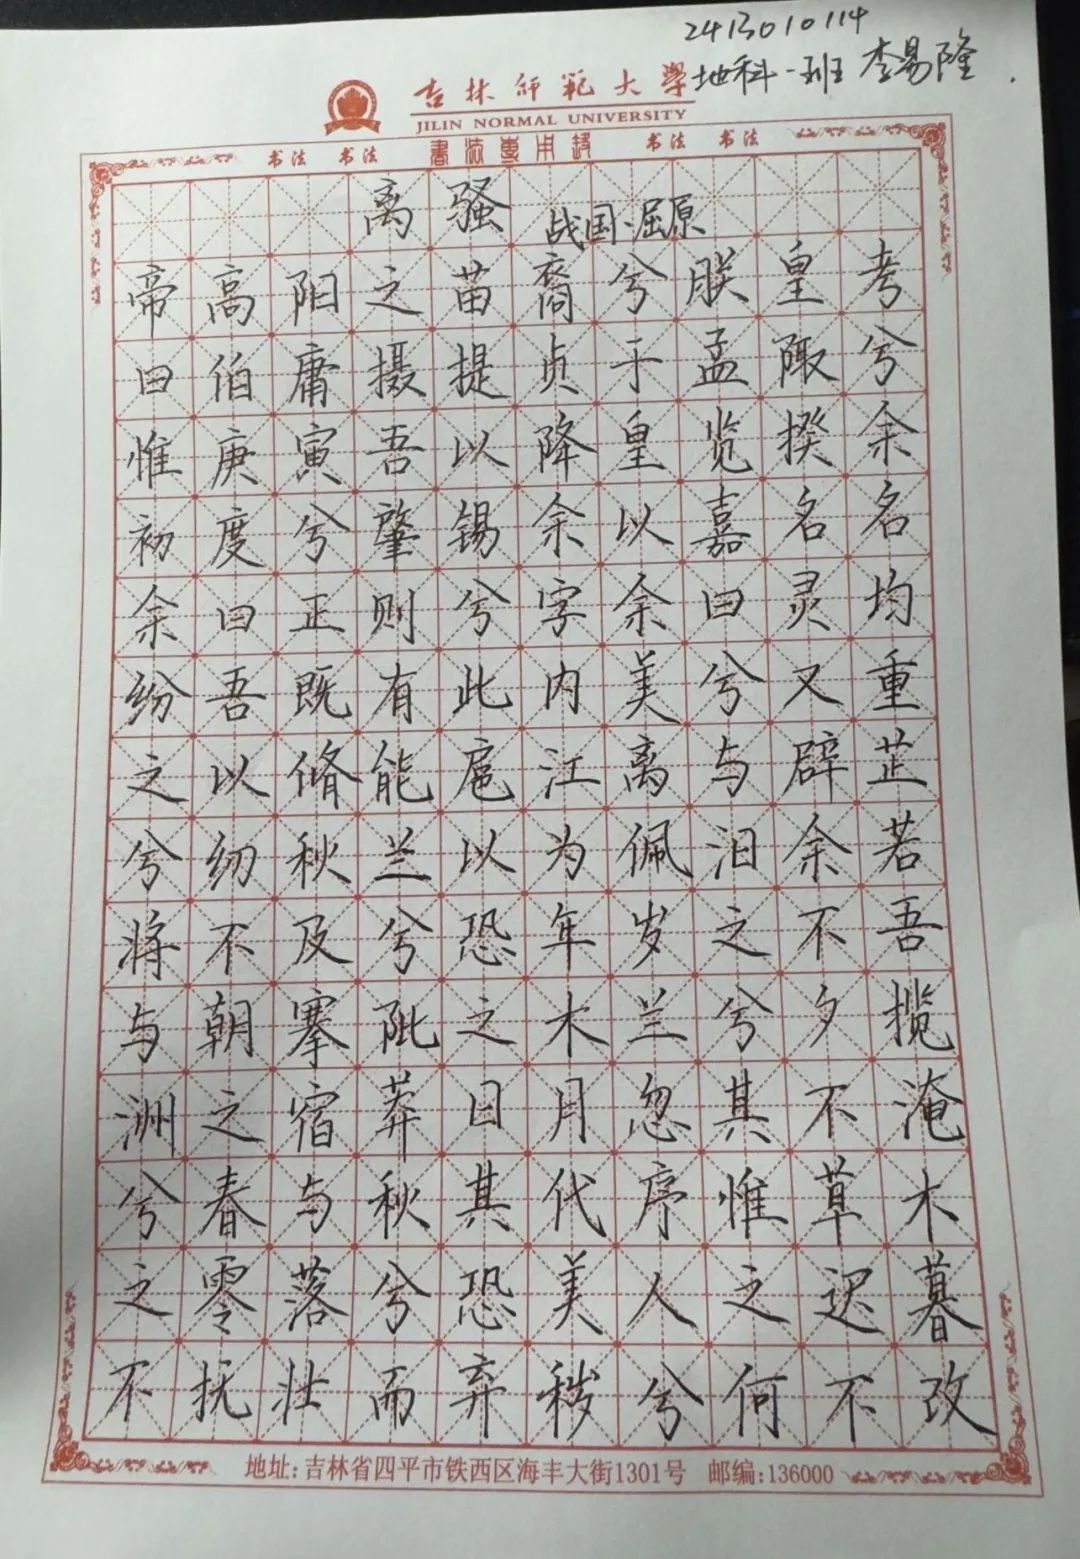 2413010114
地科一班 李易隆
吉林师范大学
JILIN NORMAL UNIVERSITY
书法 书法 書法專用紙 书法 书法
离骚 战国·屈原
帝高阳之苗裔兮朕皇考
曰伯庸摄提贞于孟陬兮
惟庚寅吾以降皇览揆余
初度兮肇锡余以嘉名名
余曰正则兮字余曰灵均
纷吾既有此内美兮又重
之以脩能扈江离与辟芷
兮纫秋兰以为佩汩余若
将不及兮恐年岁之不吾
与朝搴阰之木兰兮夕揽
洲之宿莽日月忽其不淹
兮春与秋其代序惟草木
之零落兮恐美人之迟暮
不抚壮而弃秽兮何不改
地址:吉林省四平市铁西区海丰大街1301号 邮编:136000